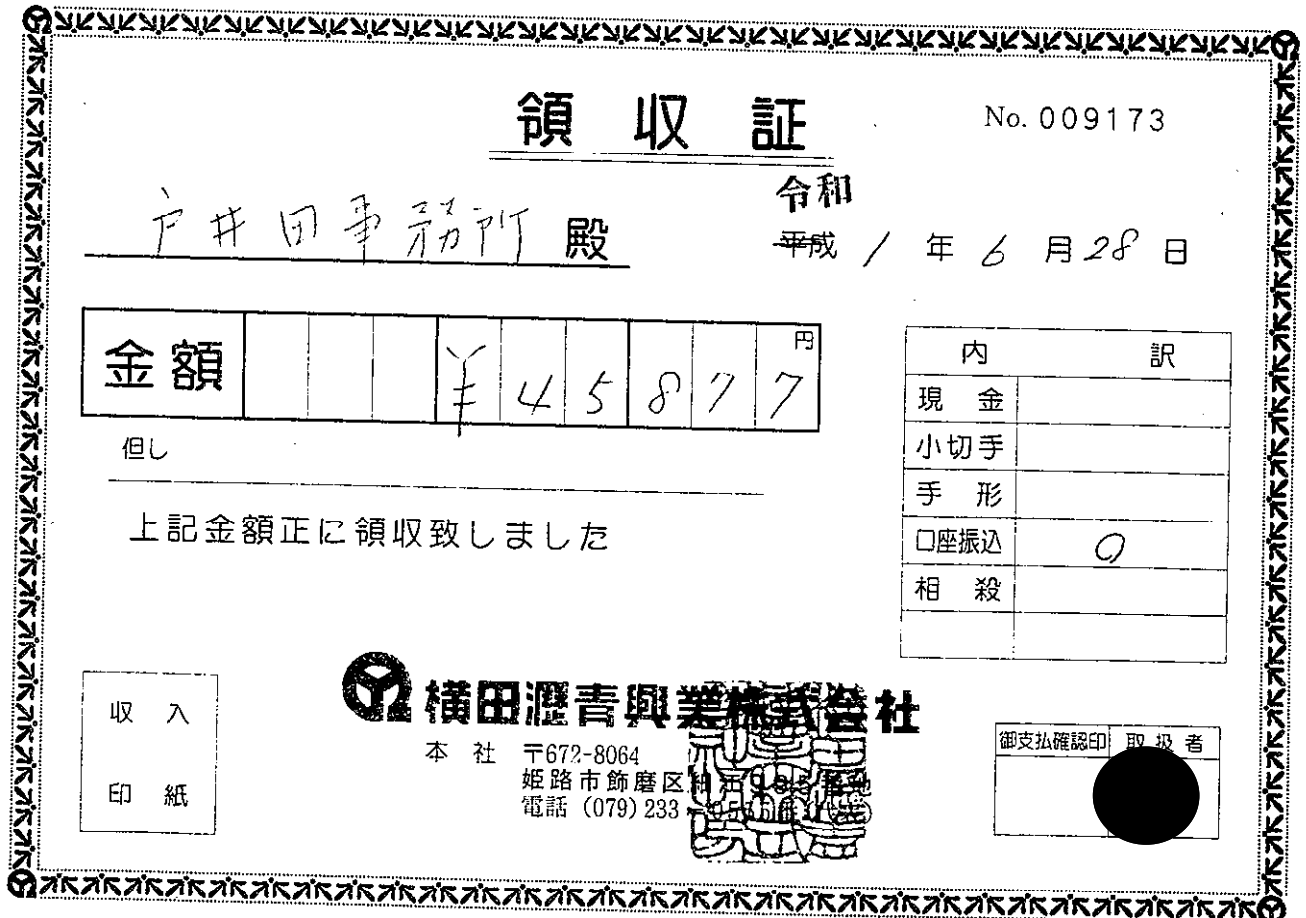 領収証
No. 009173
戸井田事務所 殿
令和
平成 1 年 6 月 28 日
金額 ¥45877 円
但し
上記金額正に領収致しました
内訳
現金
小切手
手形
口座振込 〇
相殺
収入
印紙
横田瀝青興業株式会社
本社 〒672-8064
姫路市飾磨区
電話 (079) 233
御支払確認印 取扱者